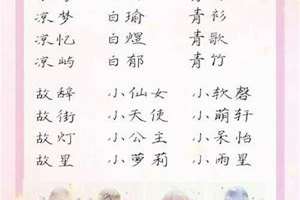 凉梦 白瑜 青衫
凉忆 白煜 青歌
凉屿 白郁 青竹
故辞 小仙女 小软馨
故街 小天使 小萌轩
故灯 小公主 小呆怡
故里 小萝莉 小雨里